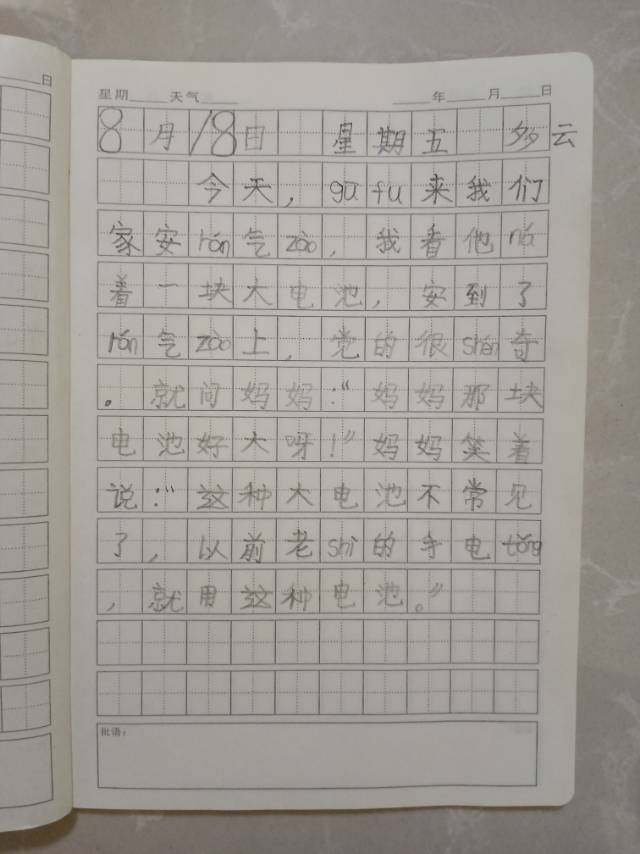 日
星期 天气 年 月 日
8月18日 星期五 多云
今天，gū fu来我们
家安rán气zào，我看他ná
着一块大电池，安到了
rán气zào上，党的很shén奇
。就问妈妈：“妈妈那块
电池好大呀！”妈妈笑着
说：“这种大电池不常见
了，以前老shì的手电tǒng
，就用这种电池。”
批语：